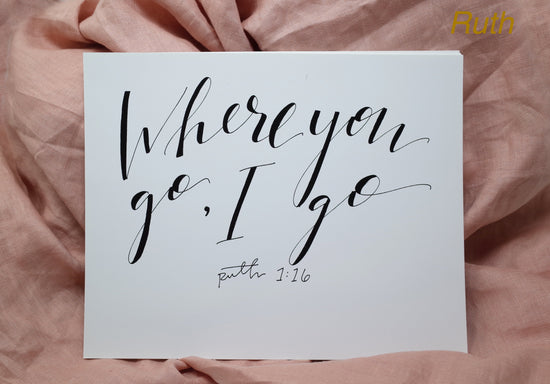 Ruth
Where you
go, I go
ruth 1:16